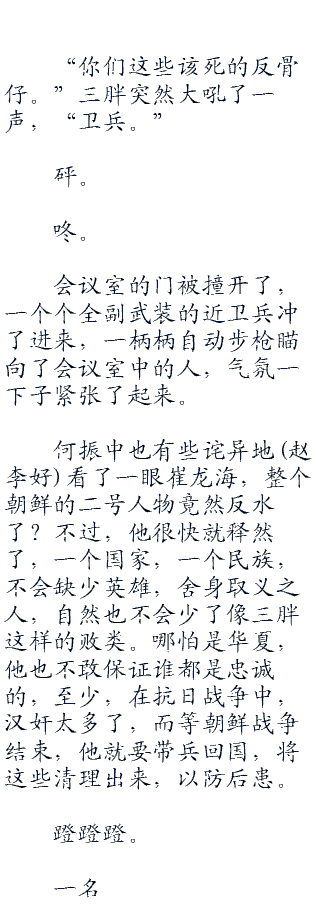 “你们这些该死的反骨
仔。”三胖突然大吼了一
声，“卫兵。”
砰。
咚。
会议室的门被撞开了，
一个个全副武装的近卫兵冲
了进来，一柄柄自动步枪瞄
向了会议室中的人，气氛一
下子紧张了起来。
何振中也有些诧异地(赵
李好)看了一眼崔龙海，整个
朝鲜的二号人物竟然反水
了？不过，他很快就释然
了，一个国家，一个民族，
不会缺少英雄，舍身取义之
人，自然也不会少了像三胖
这样的败类。哪怕是华夏，
他也不敢保证谁都是忠诚
的，至少，在抗日战争中，
汉奸太多了，而等朝鲜战争
结束，他就要带兵回国，将
这些清理出来，以防后患。
蹬蹬蹬。
一名